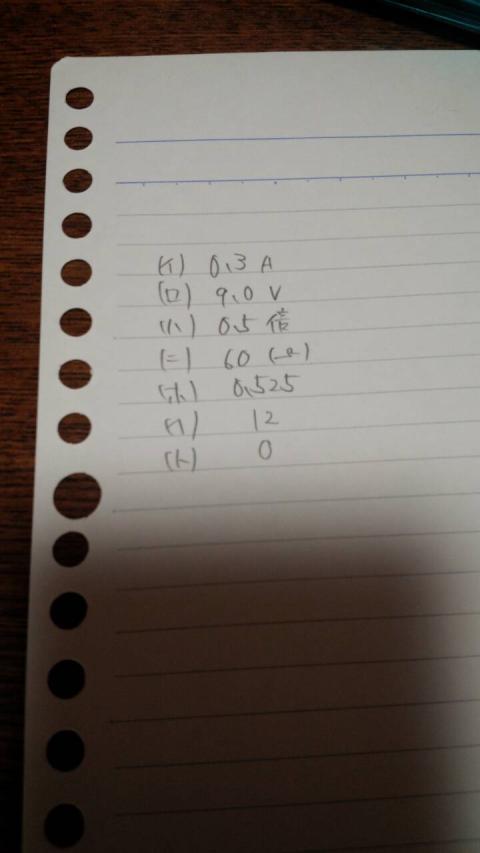 (イ) 0.3 A
(ロ) 9.0 V
(ハ) 0.5 倍
(ニ) 60 (Ω)
(ホ) 0.525
(ヘ) 12
(ト) 0